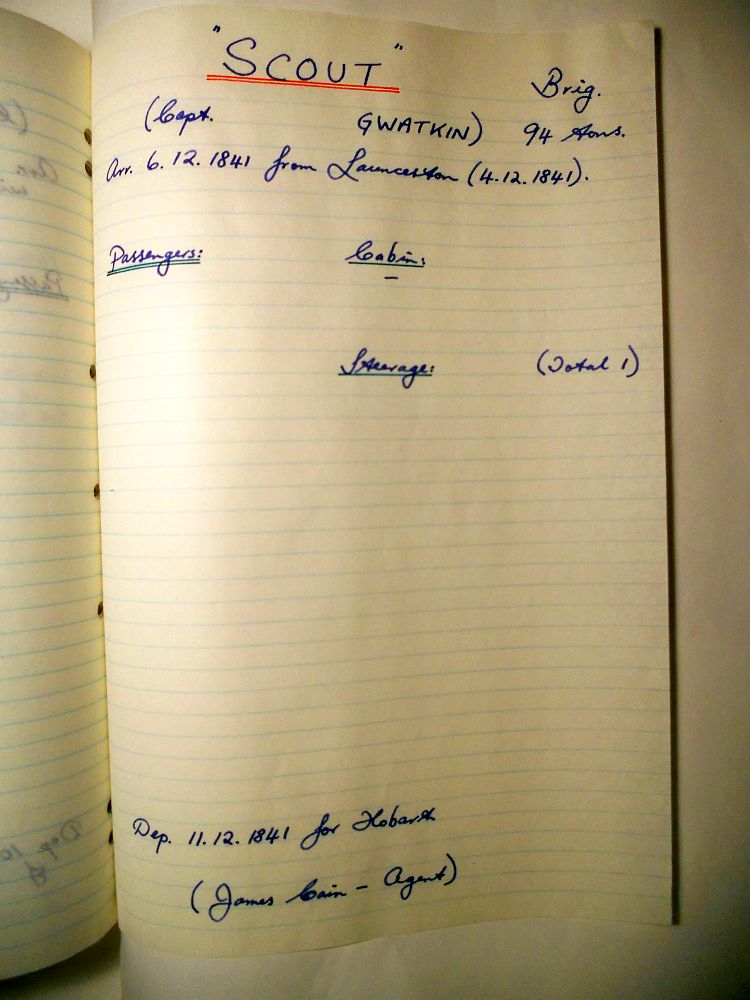 "SCOUT"
Brig.
(Capt. GWATKIN) 94 tons.
Arr. 6.12.1841 from Launceston (4.12.1841).
Passengers: Cabin:
—
Steerage: (Total 1)
Dep. 11.12.1841 for Hobart
(James Cain – Agent)